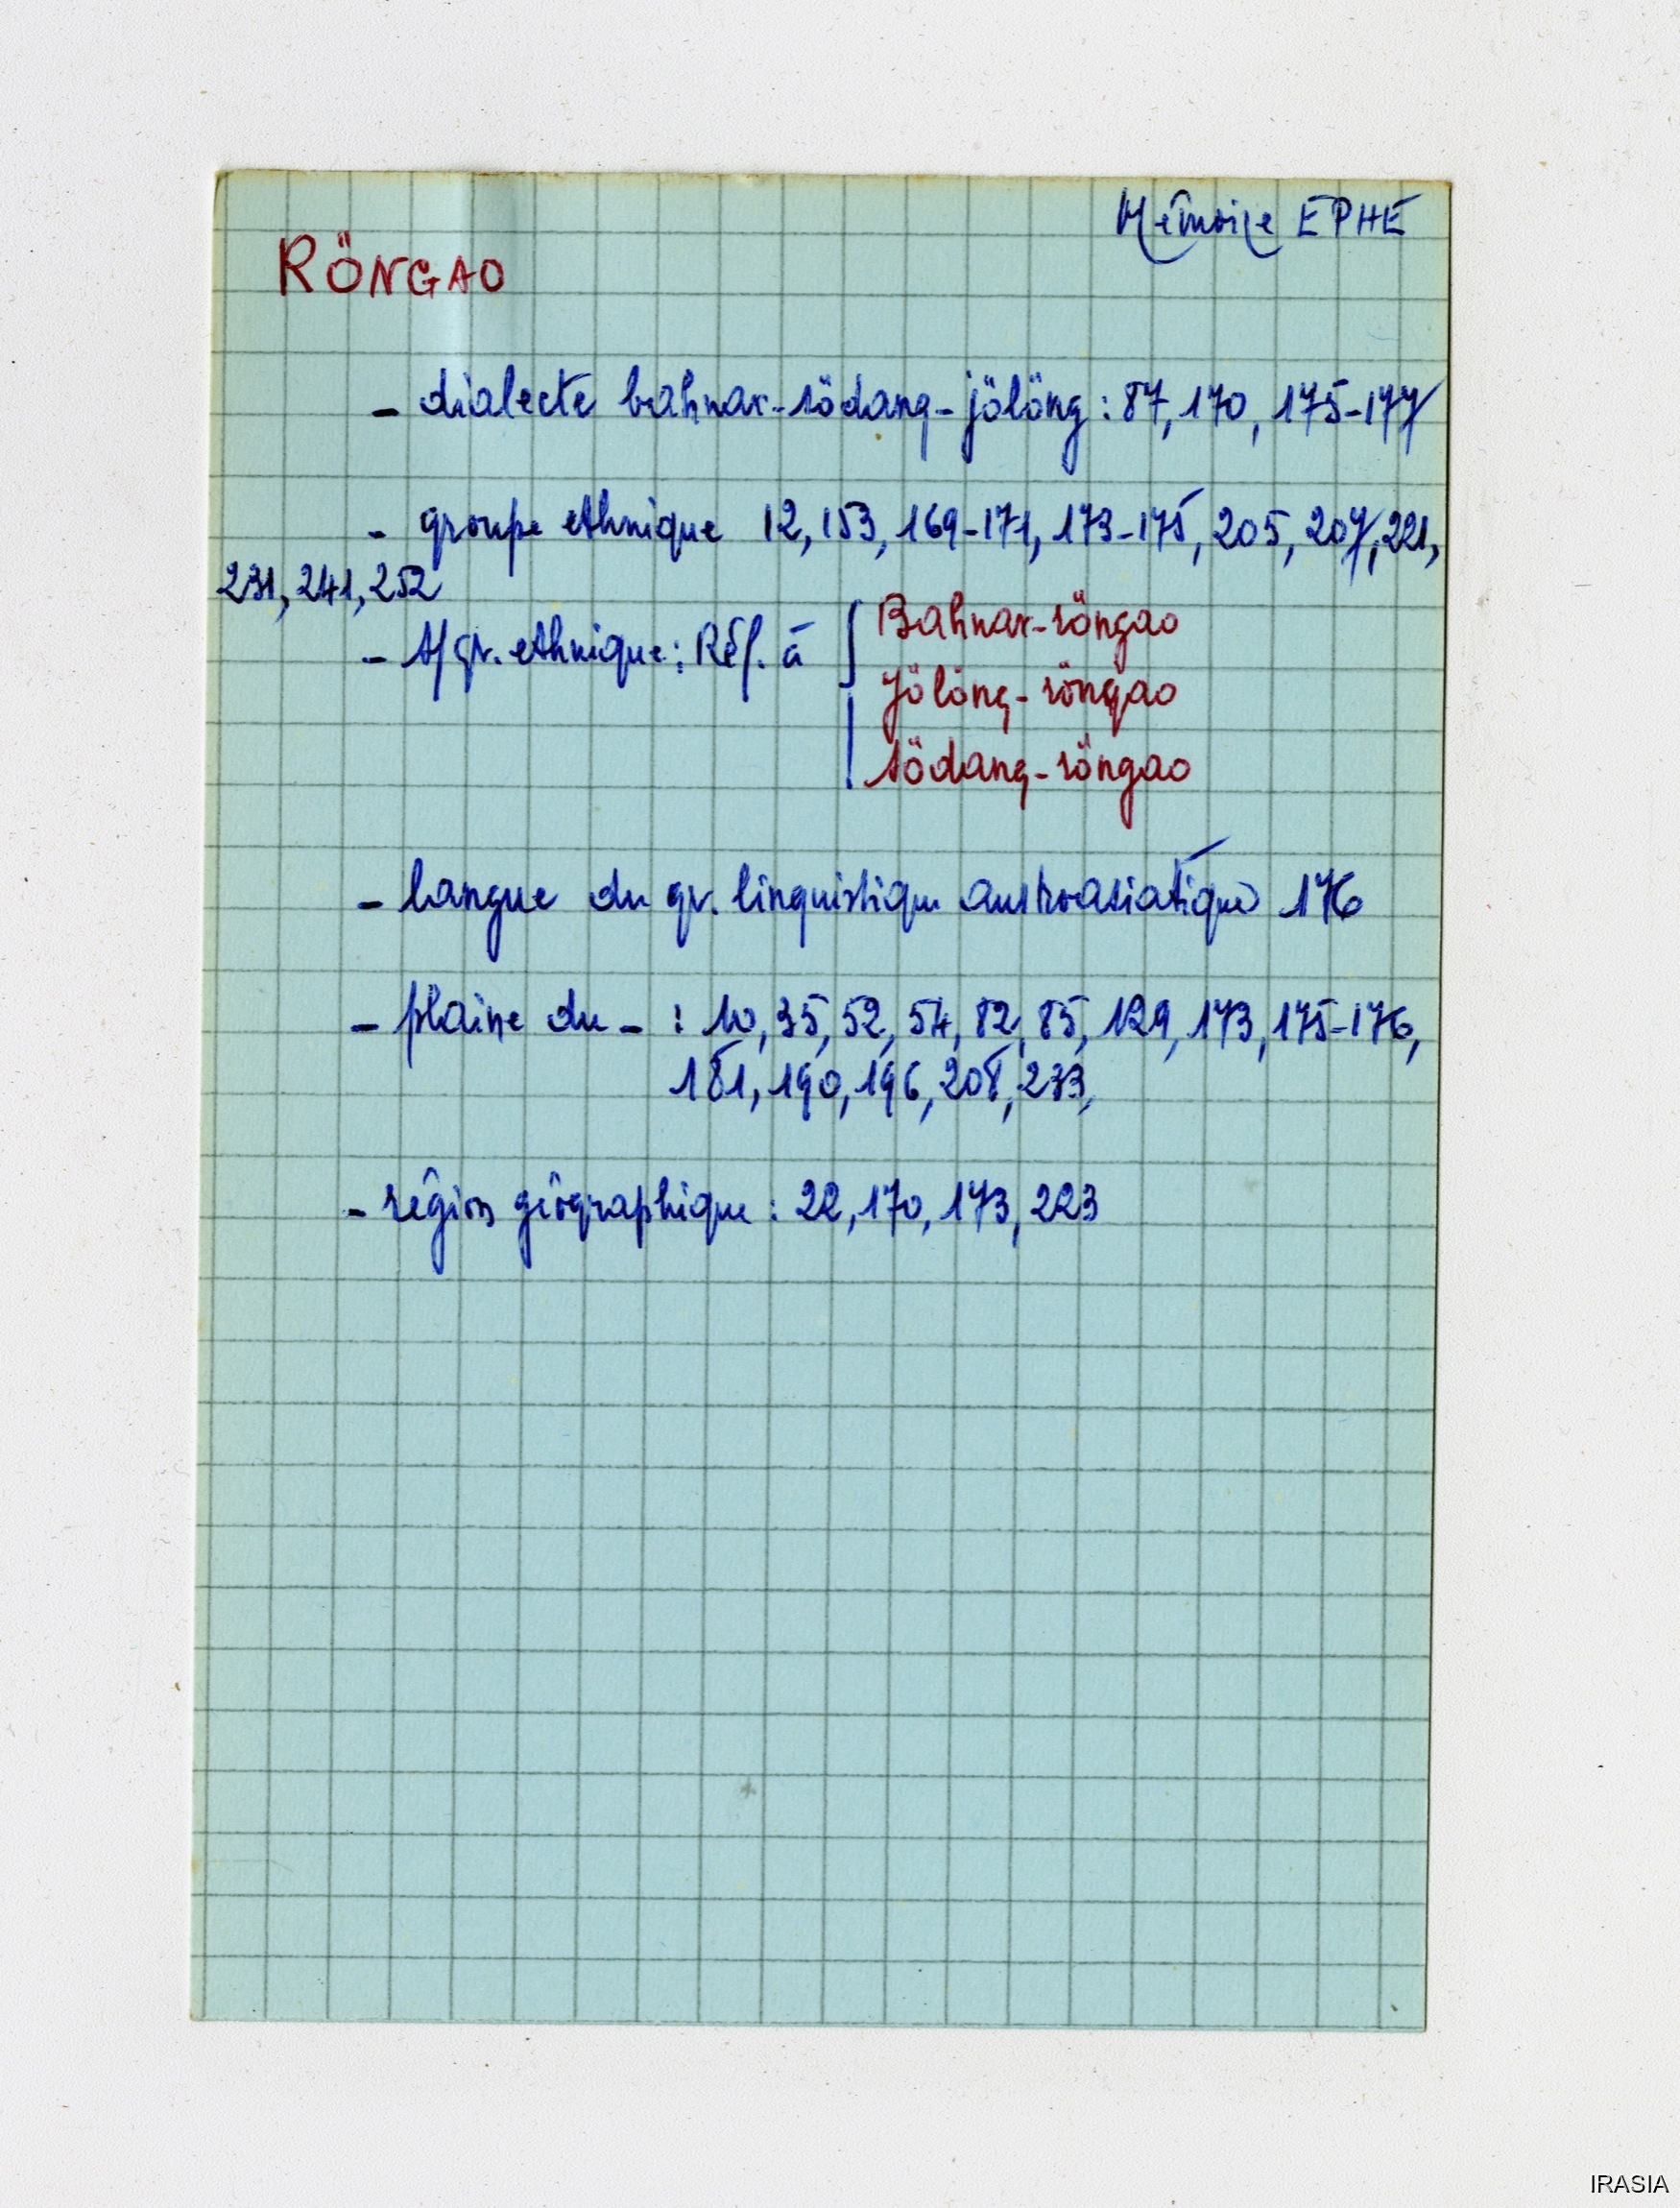 Mémoire EPHE
RÖNGAO
- dialecte bahnar-södang-jölöng : 87, 170, 175-177
- groupe ethnique 12, 153, 169-171, 173-175, 205, 207, 221,
231, 241, 252
- s/gr. ethnique : Réf. à { Bahnar-röngao
Jölöng-röngao
södang-röngao
- langue du gr. linguistique austroasiatique 176
- plaine du - : 10, 35, 52, 54, 82, 85, 129, 173, 175-176,
181, 190, 196, 208, 233,
- région géographique : 22, 170, 173, 223
IRASIA